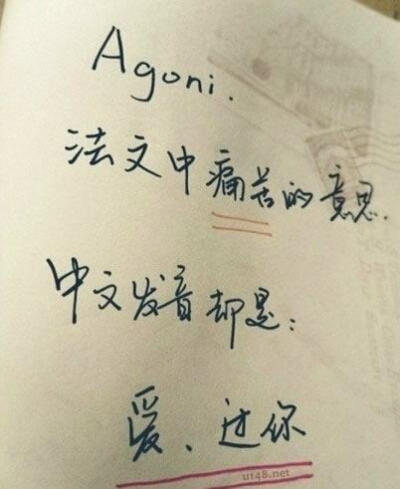 Agoni.
法文中痛苦的意思.
中文发音却是:
爱、过你
u148.net